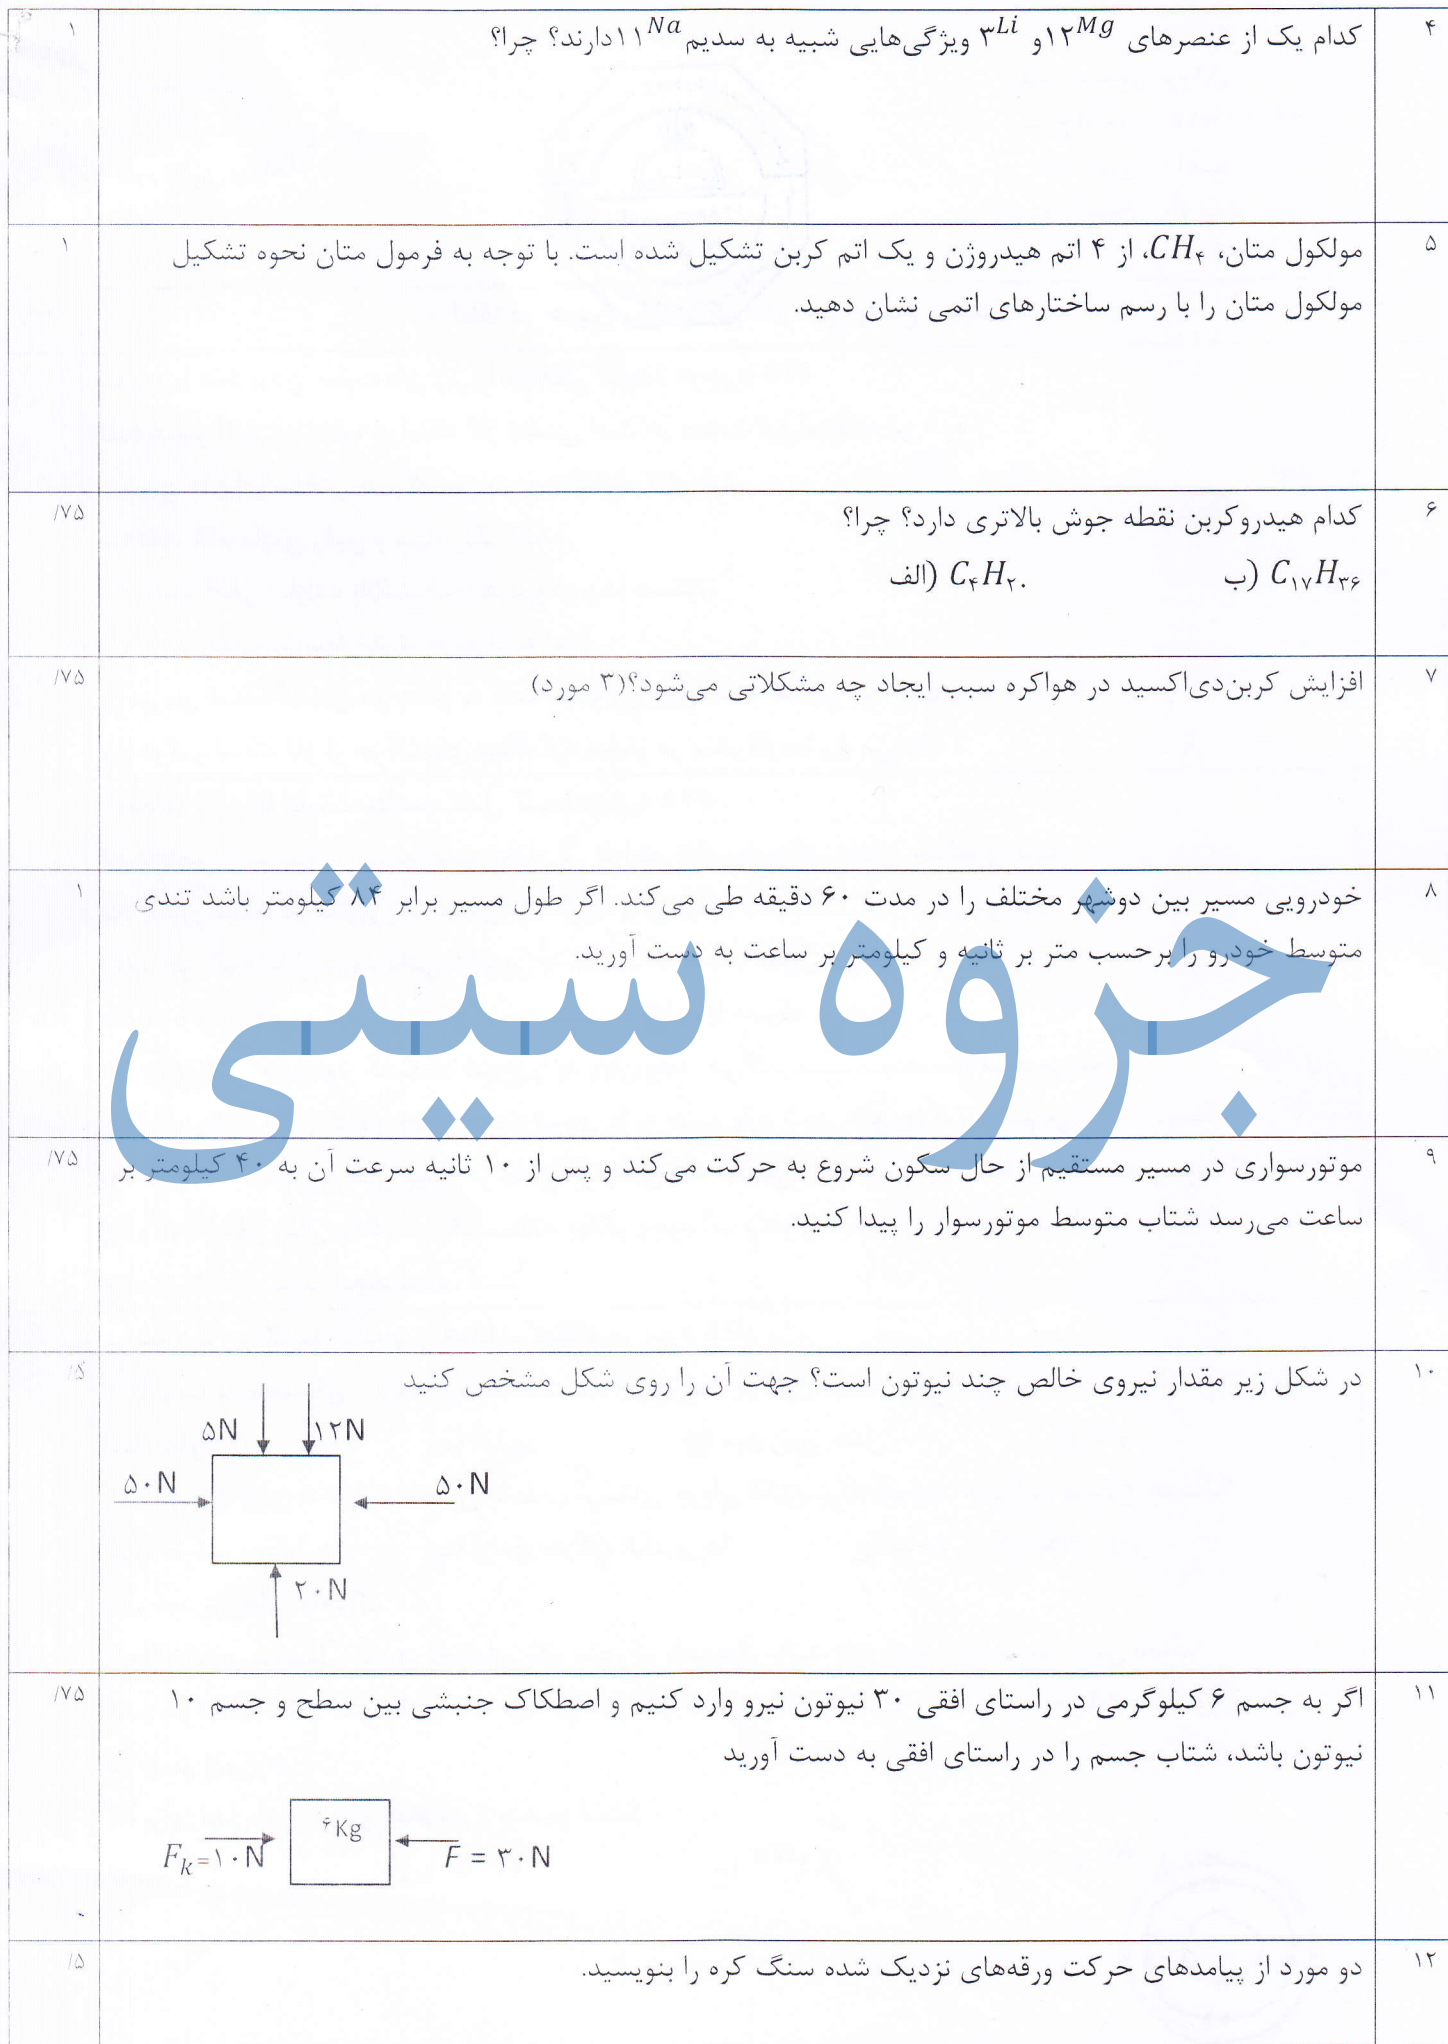 ۴ کدام یک از عنصرهای ۱۲Mg و ۳Li ویژگی‌هایی شبیه به سدیم ۱۱Na دارند؟ چرا؟ ۱
۵ مولکول متان، CH۴، از ۴ اتم هیدروژن و یک اتم کربن تشکیل شده است. با توجه به فرمول متان نحوه تشکیل ۱
مولکول متان را با رسم ساختارهای اتمی نشان دهید.
۶ کدام هیدروکربن نقطه جوش بالاتری دارد؟ چرا؟ /۷۵
ب) C۱۷H۳۶ الف) C۴H۲۰
۷ افزایش کربن‌دی‌اکسید در هواکره سبب ایجاد چه مشکلاتی می‌شود؟(۳ مورد) /۷۵
۸ خودرویی مسیر بین دوشهر مختلف را در مدت ۶۰ دقیقه طی می‌کند. اگر طول مسیر برابر ۸۴ کیلومتر باشد تندی ۱
متوسط خودرو را برحسب متر بر ثانیه و کیلومتر بر ساعت به دست آورید.
جزوه سیتی
۹ موتورسواری در مسیر مستقیم از حال سکون شروع به حرکت می‌کند و پس از ۱۰ ثانیه سرعت آن به ۴۰ کیلومتر بر /۷۵
ساعت می‌رسد شتاب متوسط موتورسوار را پیدا کنید.
۱۰ در شکل زیر مقدار نیروی خالص چند نیوتون است؟ جهت آن را روی شکل مشخص کنید /۵
۵N ۱۲N
۵۰N ۵۰N
۲۰N
۱۱ اگر به جسم ۶ کیلوگرمی در راستای افقی ۳۰ نیوتون نیرو وارد کنیم و اصطکاک جنبشی بین سطح و جسم ۱۰ /۷۵
نیوتون باشد، شتاب جسم را در راستای افقی به دست آورید
۶Kg
Fk=۱۰N F = ۳۰N
۱۲ دو مورد از پیامدهای حرکت ورقه‌های نزدیک شده سنگ کره را بنویسید. /۵